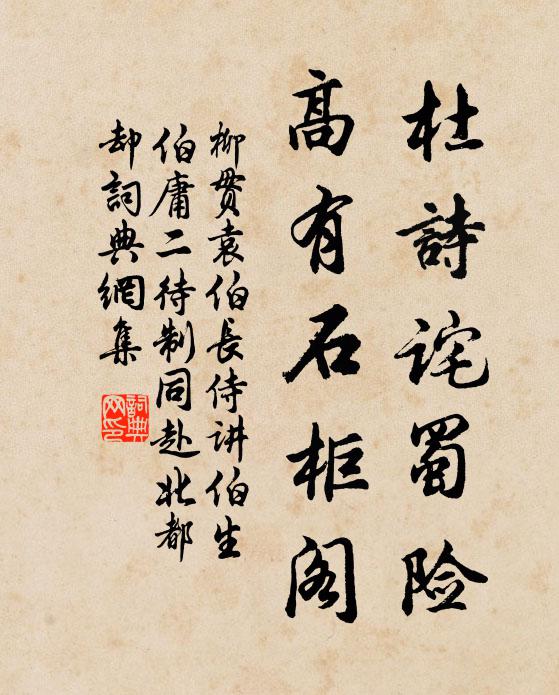 杜詩詫蜀险
高有石柜阁
柳贯袁伯長侍讲伯生
伯庸二待制同赴北都
却詞典網集
詞典网印